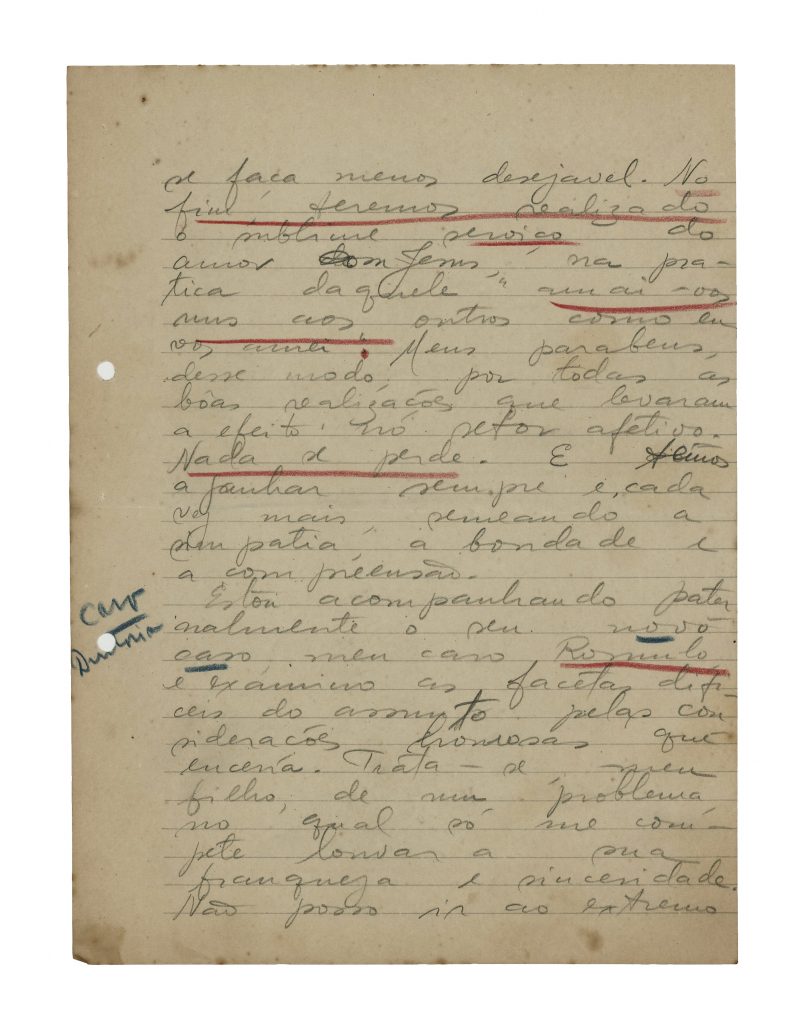 se faça menos desejavel. No
fim, teremos realizado
o sublime serviço do
amor com Jesus, na pra-
tica daquele "amai-vos
uns aos outros como eu
vos amei". Meus parabens,
desse modo, por todas as
bôas realizações que levaram
a efeito no setor afetivo.
Nada se perde. E temos
a ganhar sempre e, cada
vez mais, semeando a
simpatia, a bondade e
a compreensão.
Estou acompanhando pater
nalmente o seu novo
caso, meu caro Romulo,
e examino as facetas difi-
ceis do assunto pelas con
siderações honrosas que
encerra. Trata-se, meu
filho, de um problema
no qual só me com-
pete louvar a sua
franqueza e sinceridade.
Não posso ir ao extremo
Caso